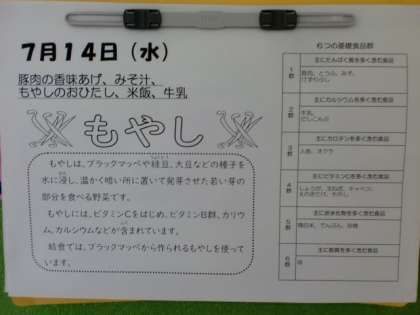 7月14日（水）
豚肉の香味あげ、みそ汁、
もやしのおひたし、米飯、牛乳
もやし
もやしは、ブラックマッペや緑豆、大豆などの種子を
水に浸し、温かく暗い所に置いて発芽させた若い芽の
部分を食べる野菜です。
もやしには、ビタミンCをはじめ、ビタミンB群、カリウ
ム、カルシウムなどが含まれています。
給食では、ブラックマッペから作られるもやしを使って
います。
6つの基礎食品群
主にたんぱく質を多く含む食品
1群
豚肉、とうふ、みそ、
主にカルシウムを多く含む食品
2群
牛乳、
主にカロテンを多く含む食品
3群
人参、オクラ
主にビタミンCを多く含む食品
4群
しょうが、玉ねぎ、キャベツ、
主に炭水化物を多く含む食品
5群
精白米、でんぷん、砂糖
主に脂質を多く含む食品
6群
油